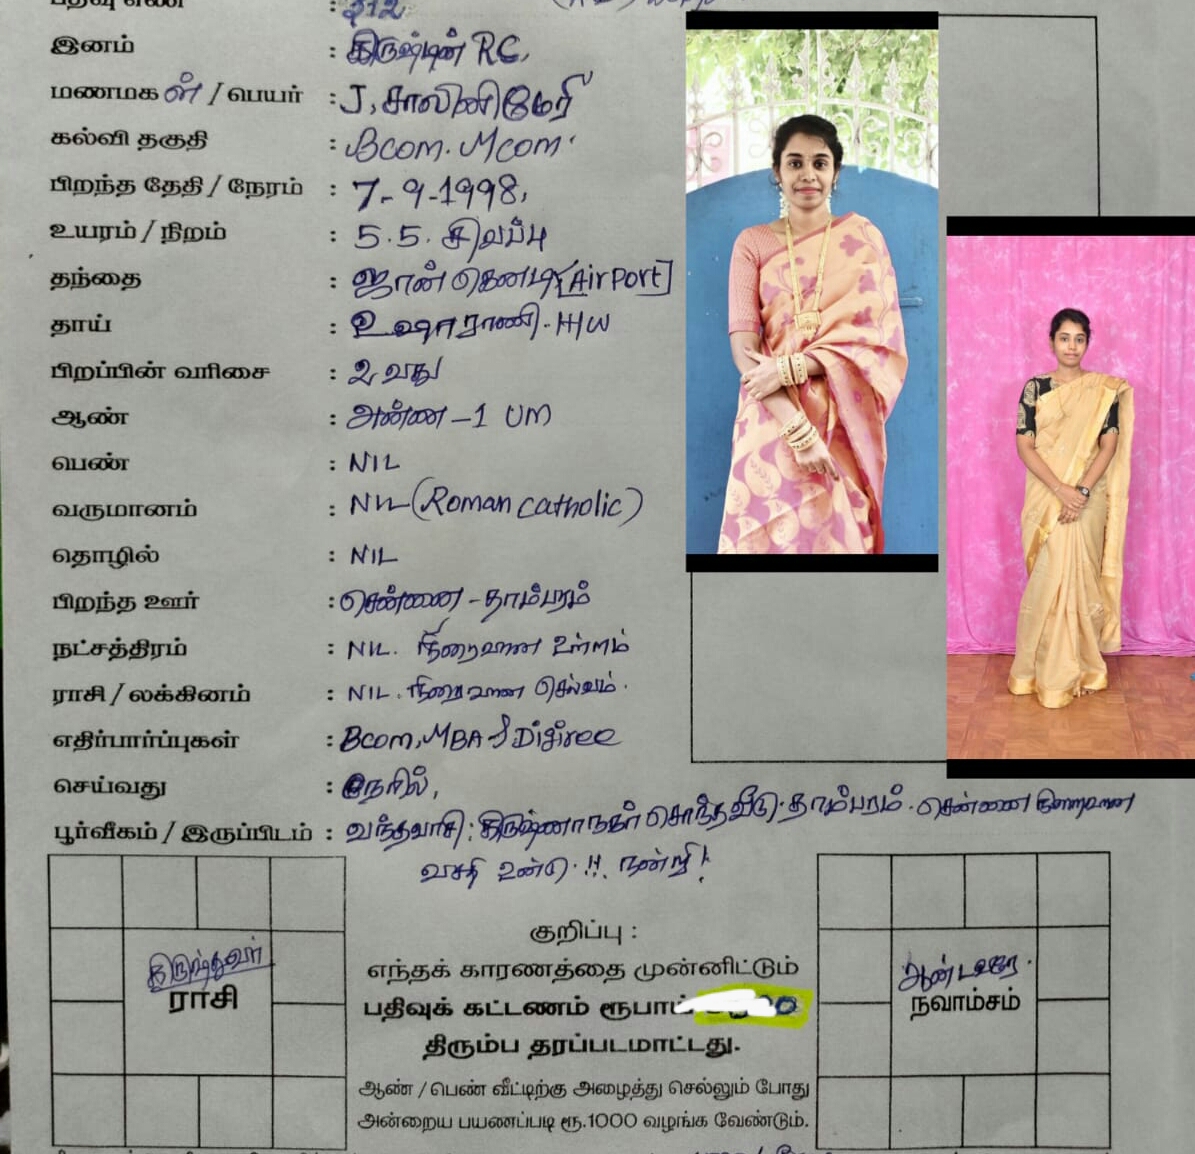 பதிவு எண் : 212
இனம் : கிருஷ்டின் RC,
மணமகள் / பெயர் : J, சாலினி மேரி
கல்வி தகுதி : Bcom. Mcom.
பிறந்த தேதி / நேரம் : 7-9-1998,
உயரம் / நிறம் : 5.5. சிவப்பு
தந்தை : ஜான் கெனடி [Airport]
தாய் : உஷாராணி - H/W
பிறப்பின் வரிசை : 2 வது
ஆண் : அண்ண - 1 UM
பெண் : NIL
வருமானம் : NIL (Roman catholic)
தொழில் : NIL
பிறந்த ஊர் : சென்னை - தாம்பரம்
நட்சத்திரம் : NIL. நிறைவான உள்ளம்
ராசி / லக்கினம் : NIL. நிறைவான செல்வம்.
எதிர்பார்ப்புகள் : Bcom, MBA Digiree
செய்வது : நேரில்,
பூர்வீகம் / இருப்பிடம் : வந்தவாசி; கிருஷ்ணா நகர் சொந்த வீடு. தாம்பரம். சென்னை நிறைவான
வசதி உண்டு. !!. நன்றி!
கிருஷ்துவர்
ராசி
குறிப்பு :
எந்தக் காரணத்தை முன்னிட்டும்
பதிவுக் கட்டணம் ரூபாய்
திரும்ப தரப்படமாட்டது.
ஆண் / பெண் வீட்டிற்கு அழைத்து செல்லும் போது
அன்றைய பயணப்படி ரூ.1000 வழங்க வேண்டும்.
ஆண்டவரே.
நவாம்சம்